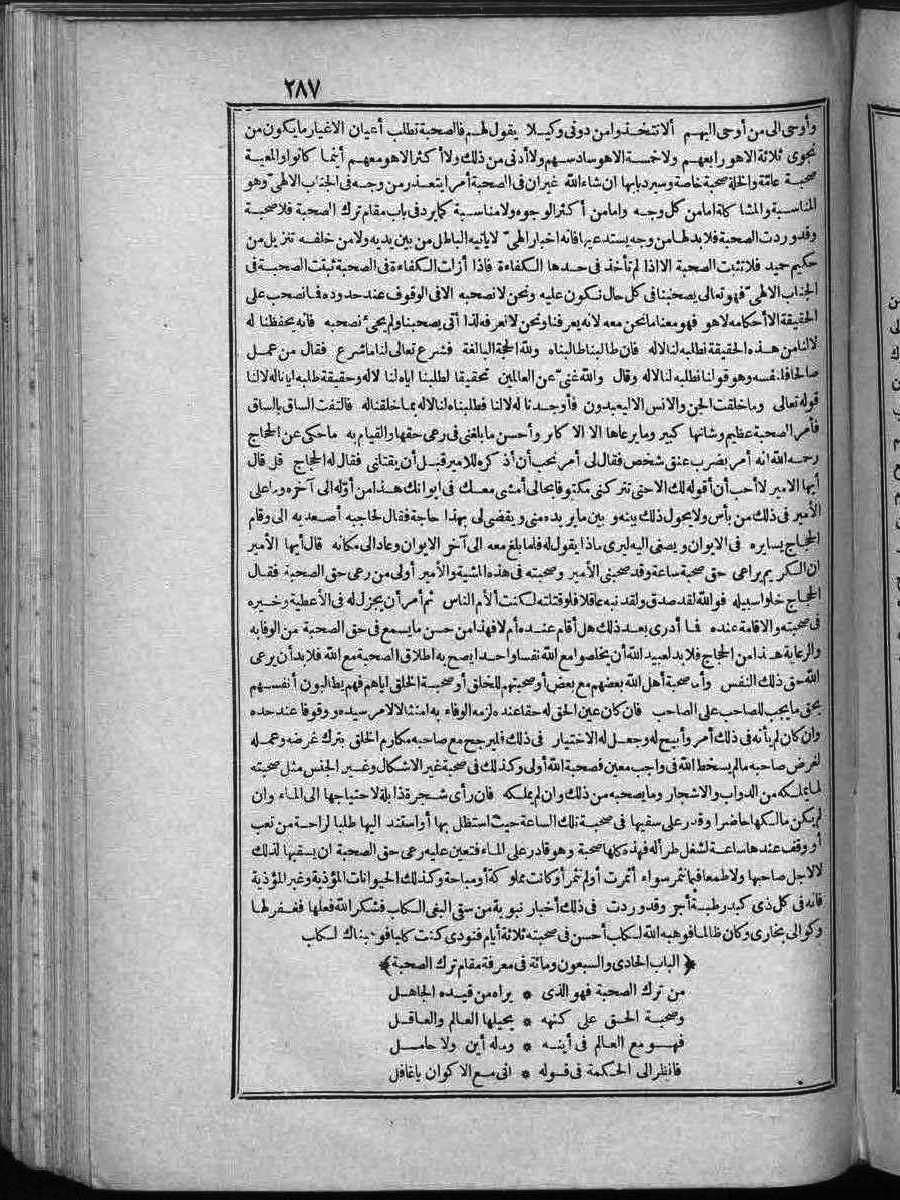 ٢٨٧
وأوحى الى من أوحى اليهم ألا تتخذوا من دونى وكيلا يقول لهم فالصحبة تطلب أعيان الاغيار ما يكون من
نجوى ثلاثة الا هو رابعهم ولا خمسة الا هو سادسهم ولا أدنى من ذلك ولا أكثر الا هو معهم أينما كانوا والمعية
صحبة عامّة والخلة صحبة خاصة وسيرد بابها ان شاء الله غير ان فى الصحبة أمرا يتعذر من وجه فى الجناب الالهىّ وهو
المناسبة والمشاكلة اما من كل وجه واما من أكثر الوجوه ولا مناسبة كما يرد فى باب مقام ترك الصحبة فلا صحبة
وقد وردت الصحبة فلا بد لها من وجه يستدعيها فانه اخبار الهىّ لا يأتيه الباطل من بين يديه ولا من خلفه تنزيل من
حكيم حميد فلا تثبت الصحبة الا اذا لم تأخذ فى حدها الكفاءة فاذا أزلت الكفاءة فى الصحبة ثبتت الصحبة فى
الجناب الالهىّ فهو تعالى يصحبنا فى كل حال نكون عليه ونحن لا نصحبه الا فى الوقوف عند حدوده فما نصحب على
الحقيقة الا أحكامه لا هو فهو معنا ما نحن معه لانه يعرفنا ونحن لا نعرفه لذا أتى يصحبنا ولم يجئ نصحبه فانه يحفظنا له
لا لنا من هذه الحقيقة نطلبه لنا لا له فان طالبنا طالبناه ولله الحجة البالغة فشرع تعالى لنا ما شرع فقال من عمل
صالحا فلنفسه وهو قولنا نطلبه لنا لا له وقال والله غنىّ عن العالمين تحقيقا لطلبنا اياه لنا لا له وحقيقة طلبه ايانا له لا لنا
قوله تعالى وما خلقت الجن والانس الا ليعبدون فأوجدنا له لا لنا فطلبناه لنا لا له بما خلقنا له فالتفت الساق بالساق
فأمر الصحبة عظيم وشانها كبير وما يرعاها الا الاكابر وأحسن ما بلغنى فى رعى حقها والقيام به ما حكى عن الحجاج
رحمه الله انه أمر بضرب عنق شخص فقال لى أمر نحب أن أذكره للامير قبل أن يقتلنى فقال له الحجاج قل قال
أيها الامير لا أحب أن أقوله لك الا حتى تتركنى مكتوفا بحالى أمشى معك فى ايوانك هذا من أوّله الى آخره وما على
الأمير فى ذلك من بأس ولا يحول ذلك بينه وبين ما يريده منى ويقضى لى بهذا حاجة فقال لحاجبه أصعد به الى وقام
الحجاج يسايره فى الايوان ويصغى اليه ليرى ماذا يقول له فلما بلغ معه الى آخر الايوان وعاد الى مكانه قال أيها الأمير
ان الكريم يراعى حق صحبة ساعة وقد صحبنى الأمير وصحبته فى هذه المشية والأمير أولى من رعى حق الصحبة فقال
الحجاج خلوا سبيله فوالله لقد صدق ولقد نبه عاقلا فلو قتلته لكنت ألأم الناس ثم أمر أن يجزل له فى الأعطية وخيره
فى صحبته والاقامة عنده فما أدرى بعد ذلك هل أقام عنده أم لا فهذا من حسن ما يسمع فى حق الصحبة من الوفا به
والرعاية هذا من الحجاج فلا بد لعبيد الله أن يخلصوا مع الله نفسا واحدا يصح به اطلاق الصحبة مع الله فلا بد أن يرعى
الله حق ذلك النفس وأما صحبة أهل الله بعضهم مع بعض أو صحبتهم للخلق أو صحبة الخلق اياهم فهم يطالبون أنفسهم
بحق ما يجب للصاحب على الصاحب فان كان عين الحق له حقا عنده لزمه الوفاء به امتثالا لامر سيده ووقوفا عند حده
وان كان لم يأته فى ذلك أمر وأبيح له وجعل له الاختيار فى ذلك فليرجح مع صاحبه مكارم الخلق بترك غرضه وعمله
لغرض صاحبه ما لم يسخط الله فى واجب معين فصحبة الله أولى وكذلك فى صحبة غير الاشكال وغير الجنس مثل صحبته
لما يملكه من الدواب والاشجار وما يصحبه من ذلك وان لم يملكه فان رأى شجرة ذابلة لاحتياجها الى الماء وان
لم يكن مالكها حاضرا وقدر على سقيها فى صحبة تلك الساعة حيث استظل بها أو استند اليها طلبا لراحة من تعب
أو وقف عندها ساعة لشغل طرأ له فهذه كلها صحبة وهو قادر على الماء فتعين عليه رعى حق الصحبة ان يسقيها لذلك
لا لاجل صاحبها ولا طمعا فيما تثمر سواء أثمرت أو لم تثمر أو كانت مملوكة أو مباحة وكذلك الحيوانات المؤذية وغير المؤذية
فانه فى كل ذى كبد رطبة أجر وقد وردت فى ذلك أخبار نبوية من سقى البغى الكلب فشكر الله فعلها فغفر لها
وكوالى بخارى وكان ظالما فوهبه الله لكلب أحسن فى صحبته ثلاثة أيام فنودى كنت كلبا فوهبناك لكلب
﴿الباب الحادى والسبعون ومائة فى معرفة مقام ترك الصحبة﴾
من ترك الصحبة فهو الذى * يراه من قيده الجاهل
وصحبة الحق على كنهه * يحيلها العالم والعاقل
فهو مع العالم فى أينه * وما له أين ولا حامل
فانظر الى الحكمة فى قوله * انى مع الاكوان يا غافل